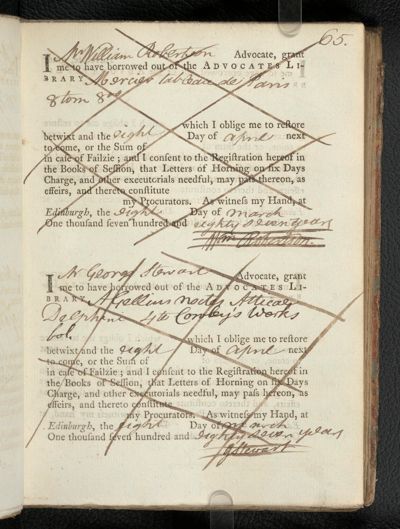 65.
I Mr William Robertson Advocate, grant
me to have borrowed out of the ADVOCATES LI-
BRARY Mercier tableau de Paris
8 tom 8vo
which I oblige me to restore
betwixt and the eight Day of April next
to come, or the Sum of
in case of Failzie; and I consent to the Registration hereof in
the Books of Session, that Letters of Horning on six Days
Charge, and other executorials needful, may pass thereon, as
effeirs, and thereto constitute
my Procurators. As witness my Hand, at
Edinburgh, the eight Day of March
One thousand seven hundred and eighty seven years
Wm Robertson.
I Mr George Stewart Advocate, grant
me to have borrowed out of the ADVOCATES LI-
BRARY A Gellius noctes Atticae
Delphini 4to Cowley's Works
which I oblige me to restore
betwixt and the eight Day of April next
to come, or the Sum of
in case of Failzie; and I consent to the Registration hereof in
the Books of Session, that Letters of Horning on six Days
Charge, and other executorials needful, may pass hereon, as
effeirs, and thereto constitute
my Procurators. As witness my Hand, at
Edinburgh, the eight Day of March
One thousand seven hundred and eighty seven years
G Stewart